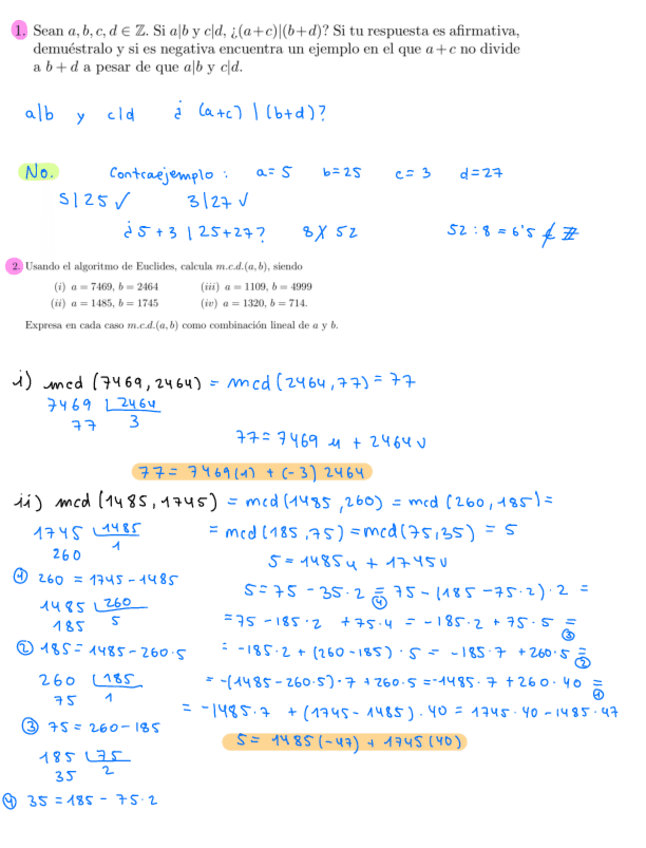 1. Sean a, b, c, d ∈ ℤ. Si a|b y c|d, ¿(a + c)|(b + d)? Si tu respuesta es afirmativa,
demuéstralo y si es negativa encuentra un ejemplo en el que a + c no divide
a b + d a pesar de que a|b y c|d.
a|b y c|d ¿ (a+c) | (b+d)?
No. Contraejemplo: a=5 b=25 c=3 d=27
5|25 ✓ 3|27 ✓
¿5+3 | 25+27? 8∤52 52:8=6'5 ∉ ℤ
2. Usando el algoritmo de Euclides, calcula m.c.d.(a, b), siendo
(i) a = 7469, b = 2464 (iii) a = 1109, b = 4999
(ii) a = 1485, b = 1745 (iv) a = 1320, b = 714.
Expresa en cada caso m.c.d.(a, b) como combinación lineal de a y b.
i) mcd (7469, 2464) = mcd (2464, 77) = 77
7469 | 2464
77 3
77 = 7469 u + 2464 v
77 = 7469 (1) + (-3) 2464
ii) mcd (1485, 1745) = mcd (1485, 260) = mcd (260, 185) =
1745 | 1485 = mcd (185, 75) = mcd (75, 35) = 5
260 1
5 = 1485u + 1745v
① 260 = 1745 - 1485
5 = 75 - 35·2 =④ 75 - (185 - 75·2)·2 =
1485 | 260
185 5
= 75 - 185·2 + 75·4 = -185·2 + 75·5 =③
② 185 = 1485 - 260·5
= -185·2 + (260 - 185)·5 = -185·7 + 260·5 =②
260 | 185
75 1
= -(1485 - 260·5)·7 + 260·5 = -1485·7 + 260·40 =①
= -1485·7 + (1745 - 1485)·40 = 1745·40 - 1485·47
③ 75 = 260 - 185
5 = 1485 (-47) + 1745 (40)
185 | 75
35 2
④ 35 = 185 - 75·2